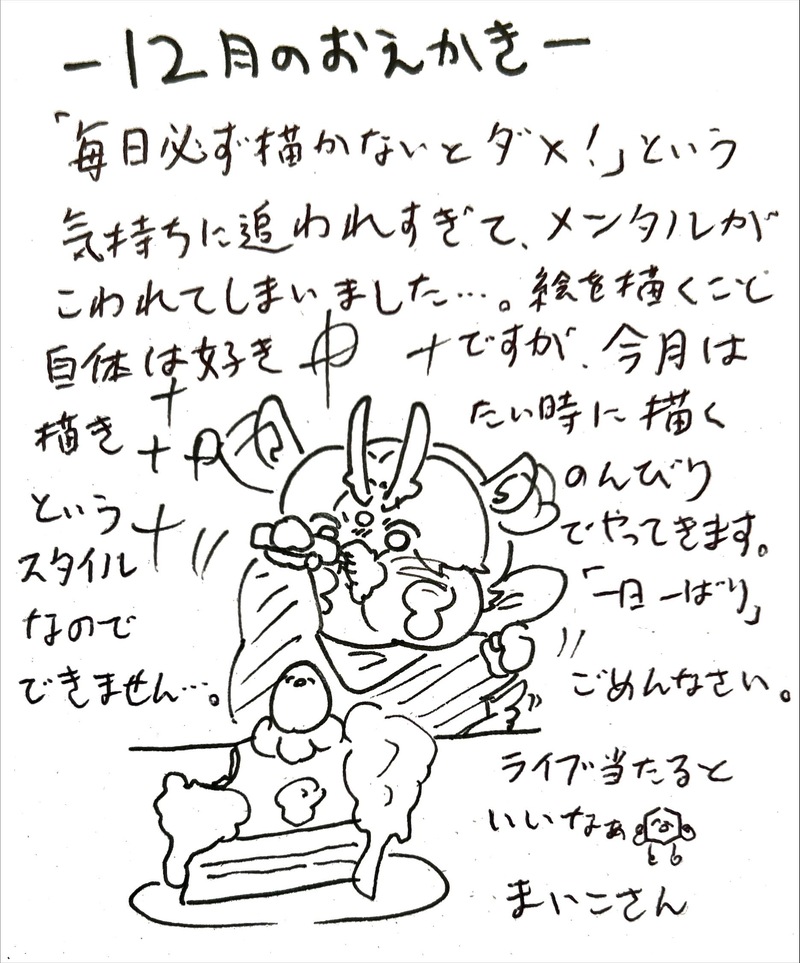 ー12月のおえかきー
「毎日必ず描かないとダメ!」という
気持ちに追われすぎて、メンタルが
こわれてしまいました…。絵を描くこと
自体は好きですが、今月は
描きたい時に描く
というのんびり
スタイルでやってきます。
なので「一日一ばり」
できません…。ごめんなさい。
ライブ当たると
いいなぁ
とら
まいこさん